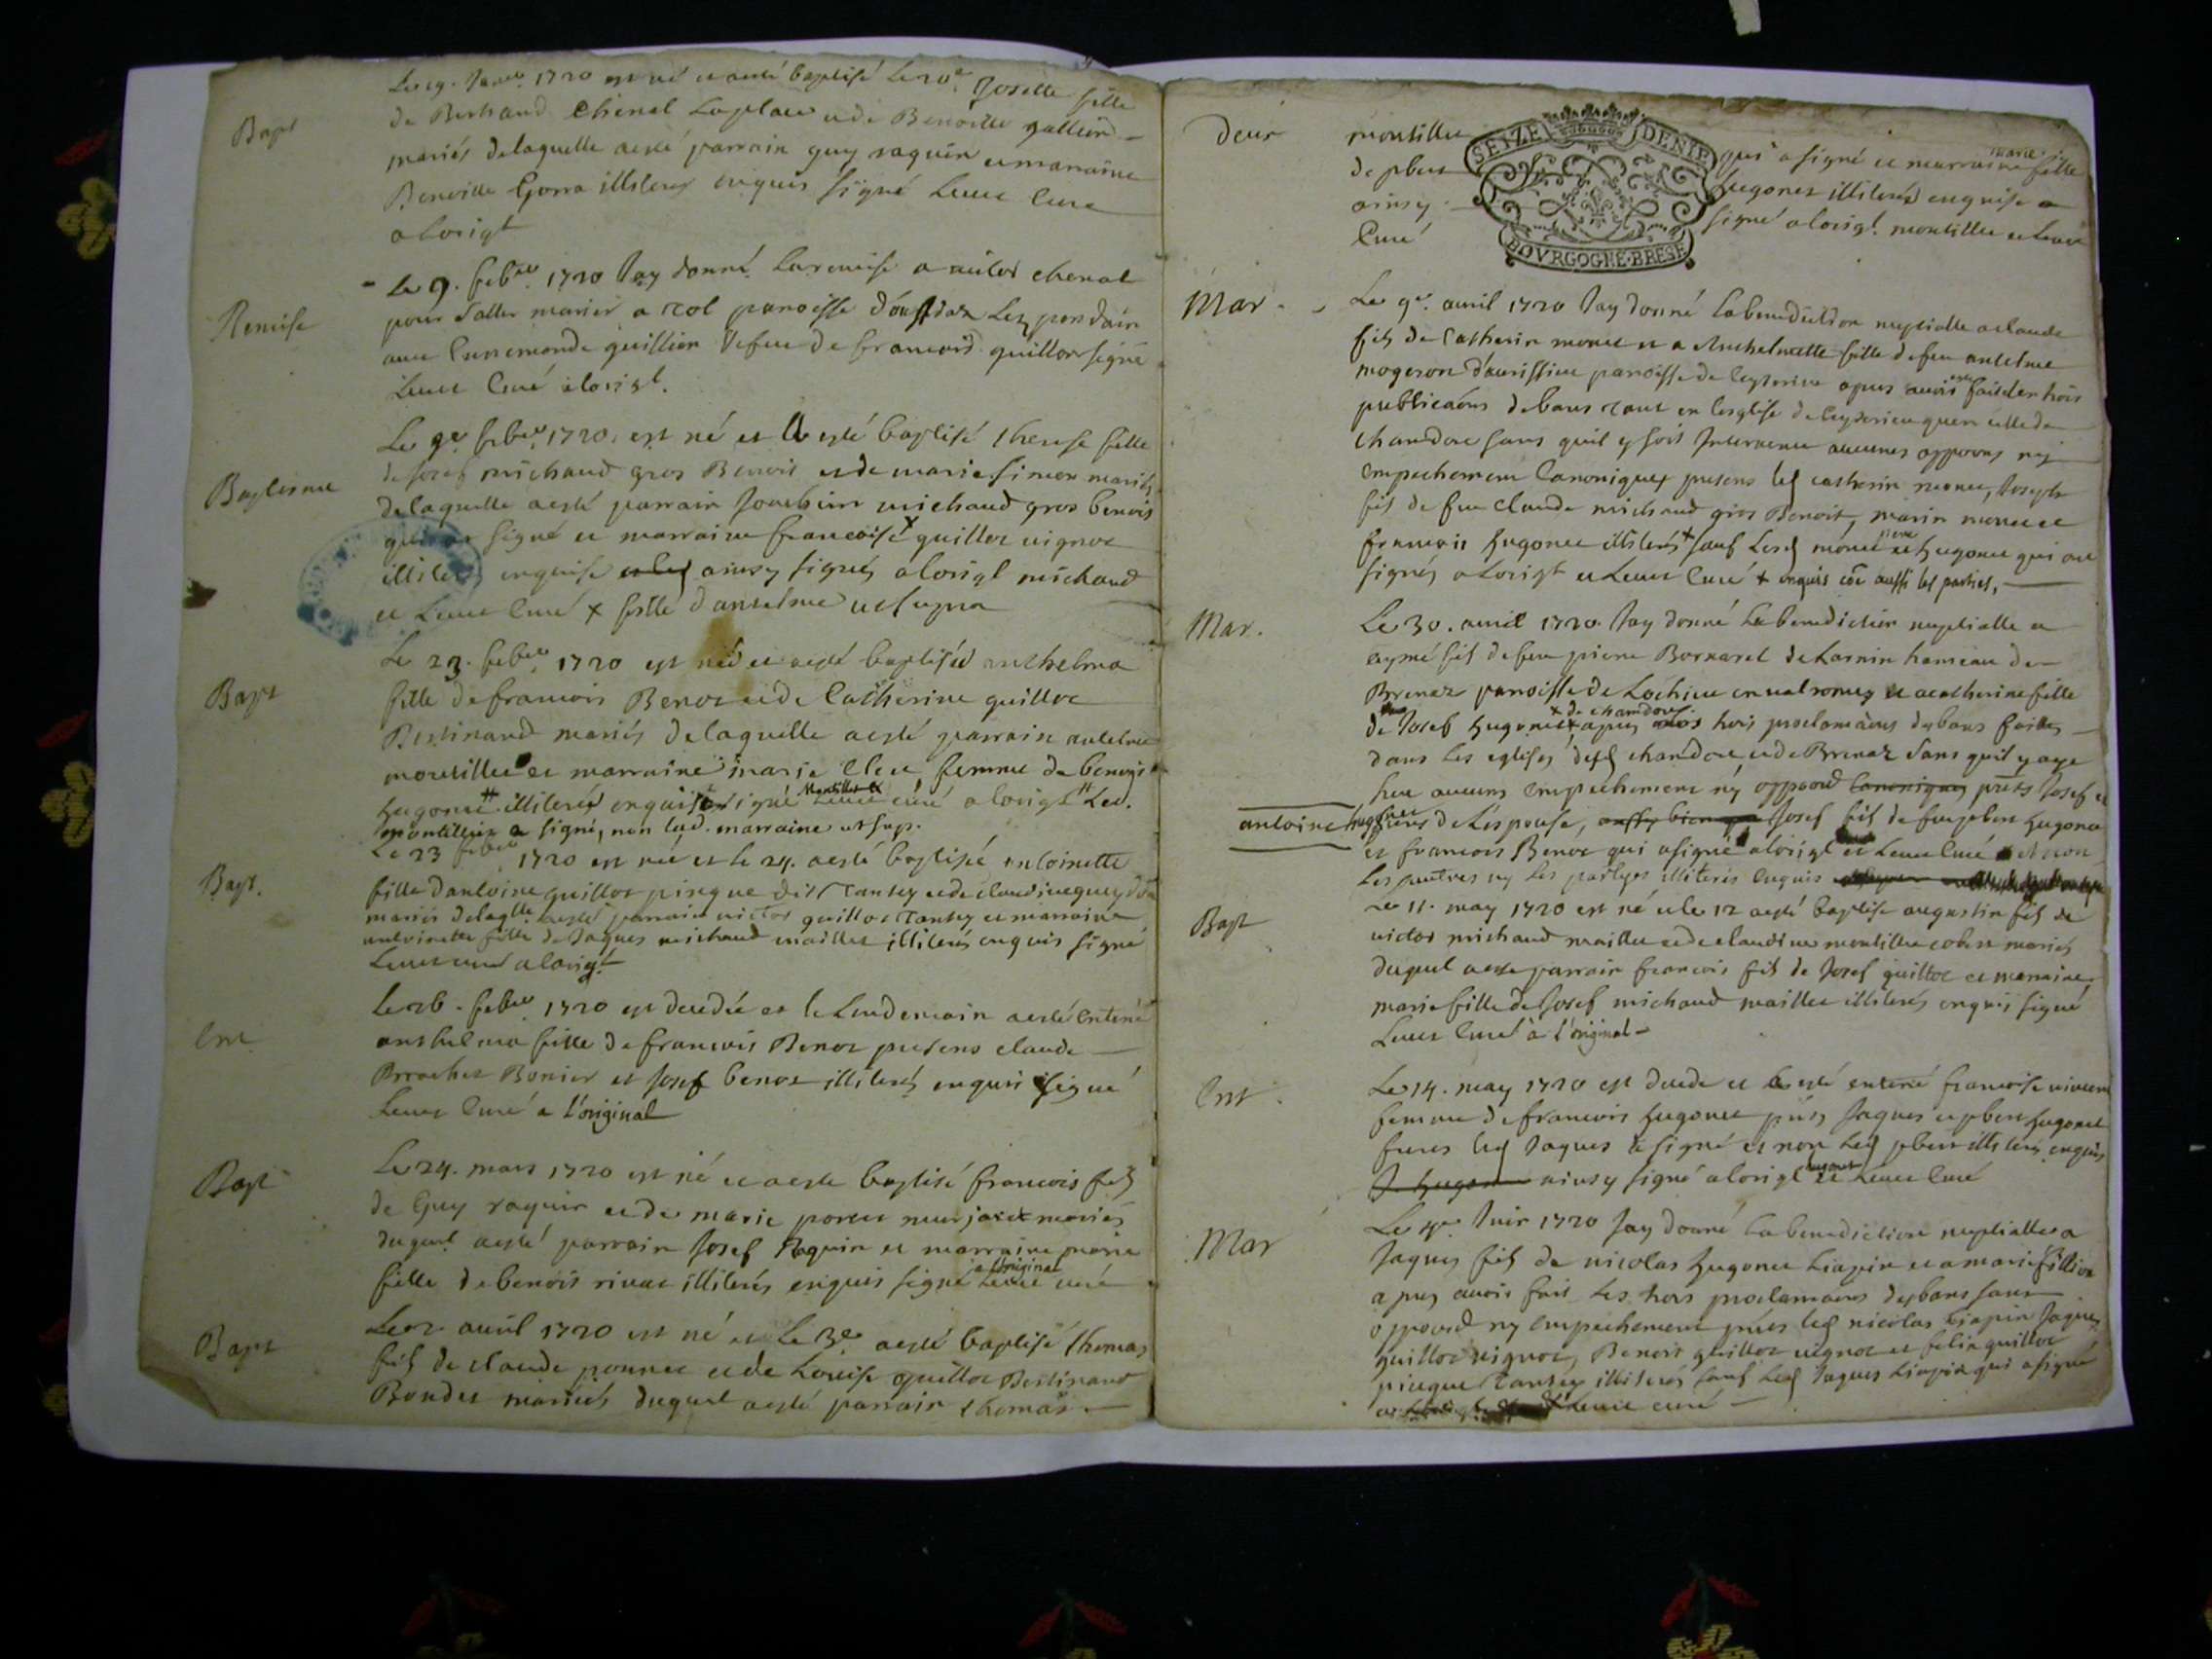 Bapt
Le 19. Janver 1720 est né et a esté baptisé le 20e Josette fille
de Berthand Chenel Laplace et de Benoitte gallion
mariés delaquelle a esté parrain guy raquin et marraine
Benoitte Gorra illiterez enquis signé Leuet Curé
a Lorigl
Remise
Le 9. feber 1720 Jay donné la remise a victor chenal
pour saller marier a paroisse
avec Cunemonde guillion vefue de francois guillot signé
Leuet Curé a lorigl.
Baptesme
Le 9e feber 1720. est né et a esté baptisé therese fille
de Josef michaud gros Benoit et de marie simon mariés
delaquelle a esté parrain Joachim michaud gros benoit
qui a signé et marraine francoise x guillot vignoc
illiterez enquise ainsy signés a lorigl michaud
et Leuet Curé x fille d'anselme ut supra
Bapt
Le 23. feber 1720 est née et a esté baptisée anthelma
fille de francois Benoz et de Catherine guillot
Bertinand mariés delaquelle a esté parrain anselme
montillet et marraine marie femme de benoist
hugonet # illiterés enquis signé Montillet & Leuet curé a lorigl # Led.
montillier a signé, non lad. marraine ut sup.
Bapt.
Le 23 feber 1720 est née et le 24. a esté baptisé antoinette
fille dantoine guillot pingue dit Tansey et de claudine
mariés delaqlle a esté parrain victor guillot Tansey et marraine
antoinette fille de Jaques michaud maillet illiterés enquis signé
Leuet curé a lorigl
Ent
Le 26. feber 1720 est decedée et le Lendemain a esté Enterré
anthelma fille de francois Benoz presens claude
Brrachet Bonier et Josef benoz illiterés enquis signé
Leuet Curé a l'original
Bapt
Le 24. mars 1720 est né et a esté baptisé francois fils
de Guy raquin et de marie porret mariés
duquel a esté parrain Josef Raquin et marraine marie
fille de benoit rivat illiterés enquis signé a loriginal Leuet curé
Bapt
Le 2 auril 1720 est né et le 3e a esté baptisé thomas
fils de claude ponnet et de Louise guillot Bertinand
Bondet mariés duquel a esté parrain thomas
deux
montillet qui a signé et marraine marie fille
de pbert hugonet illiterés enquise a
ainsy signé a lorigl. montillet et Leuet
Curé
SEIZE DENIE
BOVRGOGNE·BRESE
Mar.
Le 9e. auril 1720 Jay donné la benediction nuptialle a claude
fils de Catherin monet et a Anthelmette fille de feu antelme
mogeron d'aurissieu paroisse de Ceyzerieu apres avoir esté fait les trois
publicaons de bans tant en lesglise de Ceyzerieu quen celle de
chandore sans quil y soit Intervenu aucunes oppoons ny
empechement Canoniques presens led catherin monet, Joseph
fils de feu claude michaud gros Benoit, marin monet et
francois hugonet illiterés x sauf Lesd monet et pierre hugonet qui ont
signés a Lorigl et Leuet Curé x enquis côe aussi les parties,
Mar.
Le 30. auril 1720. Jay donné la benediction nuptialle a
aymé fils de feu pierre Bornarel de Lasnin hameau de
Brrenaz paroisse de Lochieu en valromey et a catherine fille
de Josef hugonet x de chandore x apres trois proclamâons de bans faittes
dans les eglises desd chandore et de Brrenaz Sans quil y aye
heu aucuns empechement ny oppoond Canoniques prts Josef et
antoine hugonet freres de Lespouse, aussy bien que Josef fils de feu pbert hugonet
et francois Benoz qui a signé a lorigl et Leuet Curé et non
les autres ny les partyes illiterés Enquis
Bapt
Le 11. may 1720 est né et le 12 a esté baptisé augustin fils de
victor michaud maillet et de claudine montillet mariés
duquel a este parrain francois fils de Josef guillot et marraine
marie fille de Josef michaud maillet illiterés enquis signé
Leuet Curé à l'original
Ent.
Le 14. may 1720 est decedé et a esté enterré francoise
femme de francois hugonet pnts Jaques et pbert hugonet
freres led Jaques a signé et non Led pbert illiteré enquis
J. hugonet ainsy signé a lorigl hugonet et Leuet Curé
Mar
Le Juin 1720 Jay donné la benediction nuptialle a
Jaques fils de nicolas hugonet Liapin et a marie fillion
apres avoir fait les trois proclamaons des bans sans
oppoond ny Empechement pnts led nicolas Liapin Jaques
guillot vignot, Benoit guillot vignot et felix guillot
pingue Tansey illiterés sauf Led Jaques Liapin qui a signé
Leuet curé